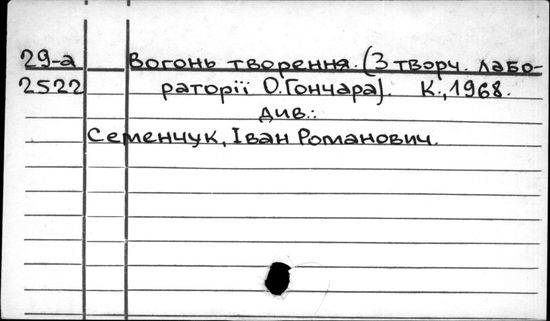 29-а Вогонь творення. (З творч. лабо-
2522 раторії О. Гончара). К., 1968.
див.:
Семенчук, Іван Романович.